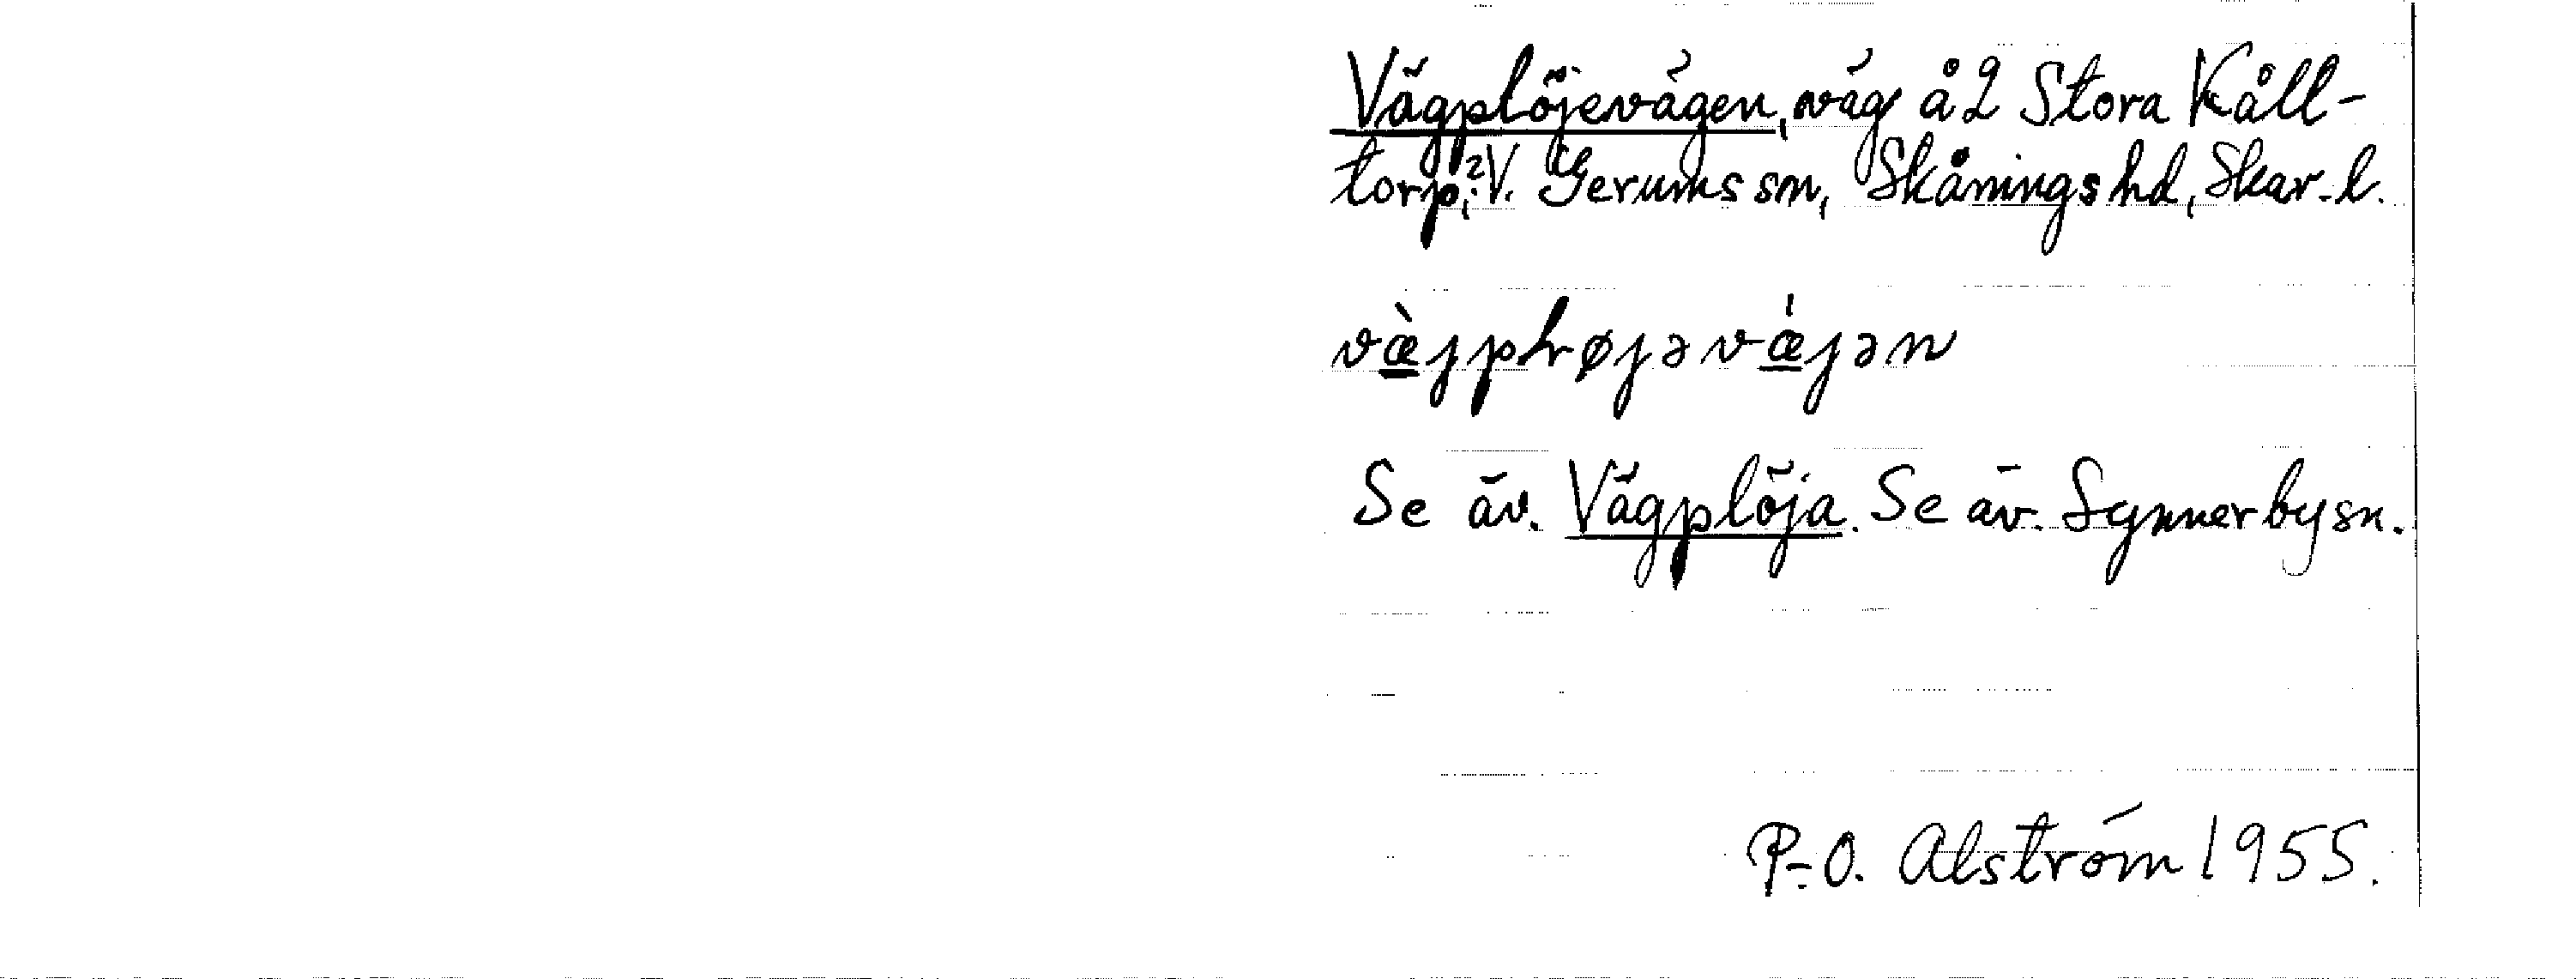 Vägplöjevägen, väg å 2 Stora Kåll-
torp, V. Gerums sn, Skånings hd, Skar. l.
væ̀jpłrøjəvæ̀jən
Se äv. Vägplöja. Se äv. Synnerby sn.
P-O. Alström 1955.